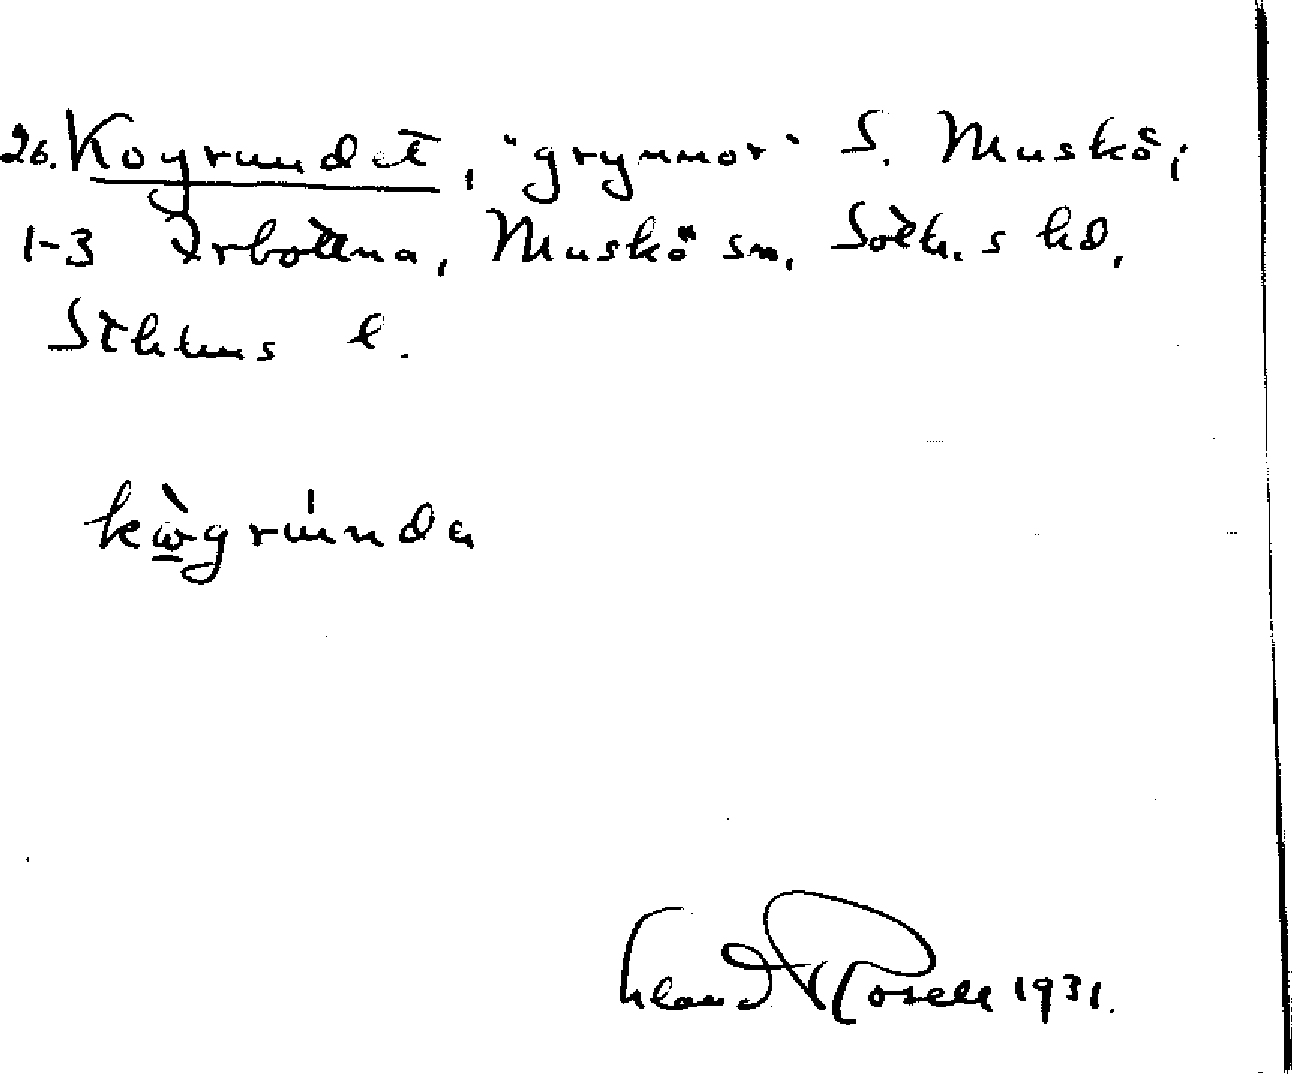 26. Kogrundet, "grynnor" S. Muskö;
1-3 Yrbottna, Muskö sn, Soth.s hd,
Sthlms l.
kògrúnda
Erland Rosell 1931.